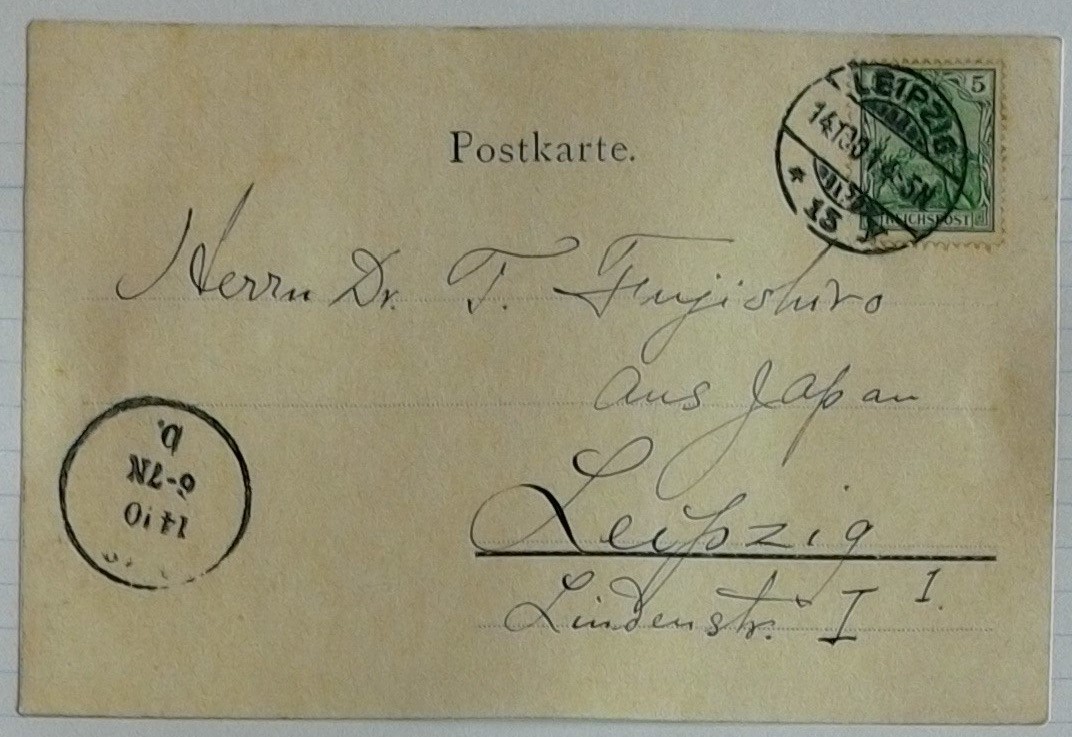 Postkarte.
LEIPZIG
13
5
REICHSPOST
Herrn Dr. T. Fujishiro
aus Japan
Leipzig
Lindenstr. I I.
b.
6-7N
14 10